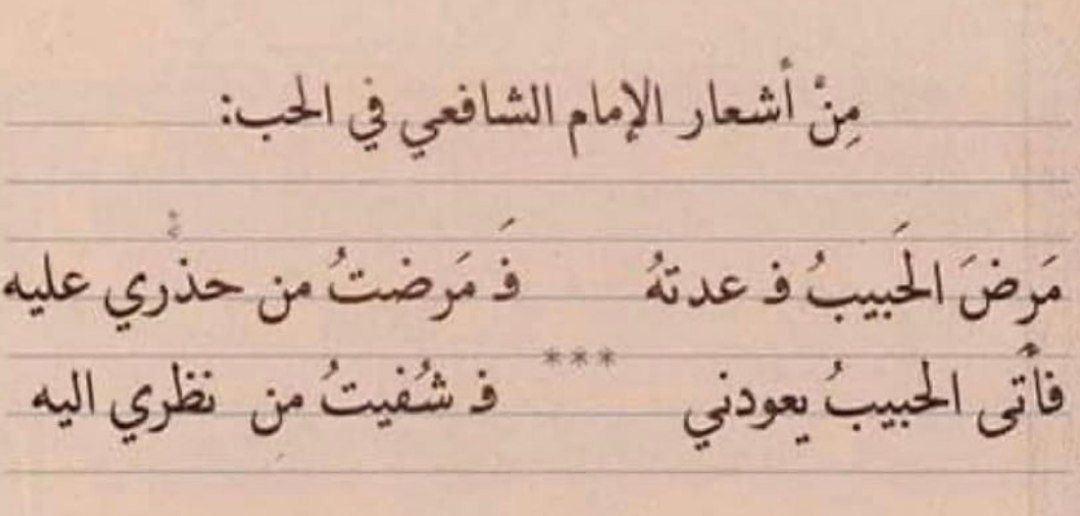 مِنْ أشعار الإمام الشافعي في الحب:
مَرضَ الحَبيبُ فـ عدتهُ فـَ مَرضتُ من حذري عليه
***
فأتى الحبيبُ يعودني فـ شُفيتُ من نظري اليه